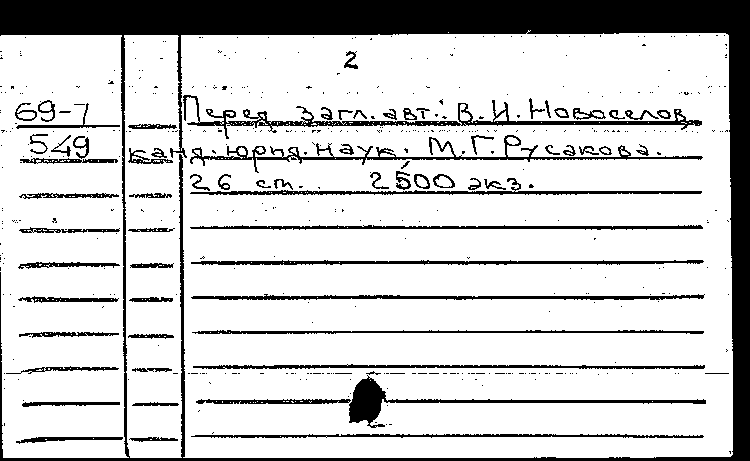 2
69-7 Перед загл. авт.: В. И. Новоселов,
549 канд. юрид. наук. М. Г. Русакова.
26 ст. 2500 экз.